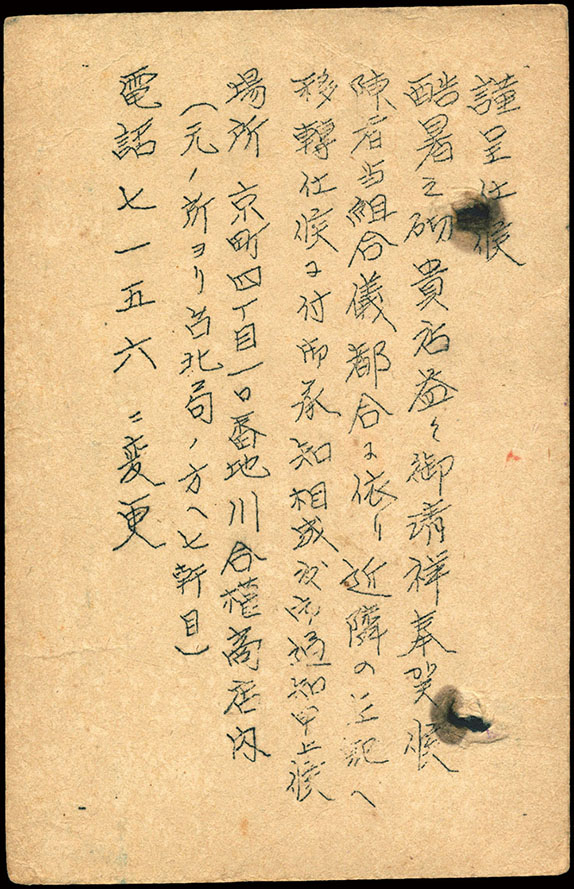 謹呈仕候
酷暑之砌貴店益々御清祥奉賀候
陳者当組合儀都合に依り近隣の左記へ
移轉仕候に付御承知相成度御通知申上候
場所 京町四丁目一〇番地川合権商店内
(元ノ所ヨリ台北局ノ方へ七軒目)
電話七一五六ニ変更